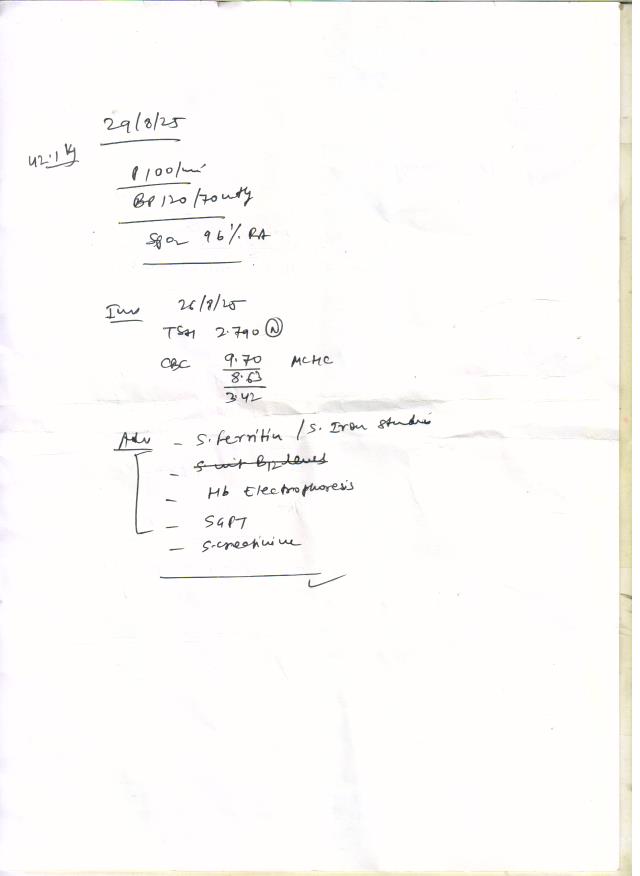 29/8/25
42.1 kg
P 100/mi
BP 120/70 mmHg
SpO2 96% RA
Inv 26/8/25
TSH 2.790 (N)
CBC 9.70 MCHC
8.63
3.42
Adv - S. ferritin / S. Iron studies
- S. vit B12 levels
- Hb Electrophoresis
- SGPT
- S. creatinine